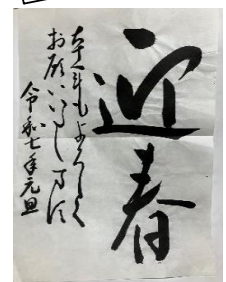 迎春
本年もよろしく
お願いいたします
令和七年元旦